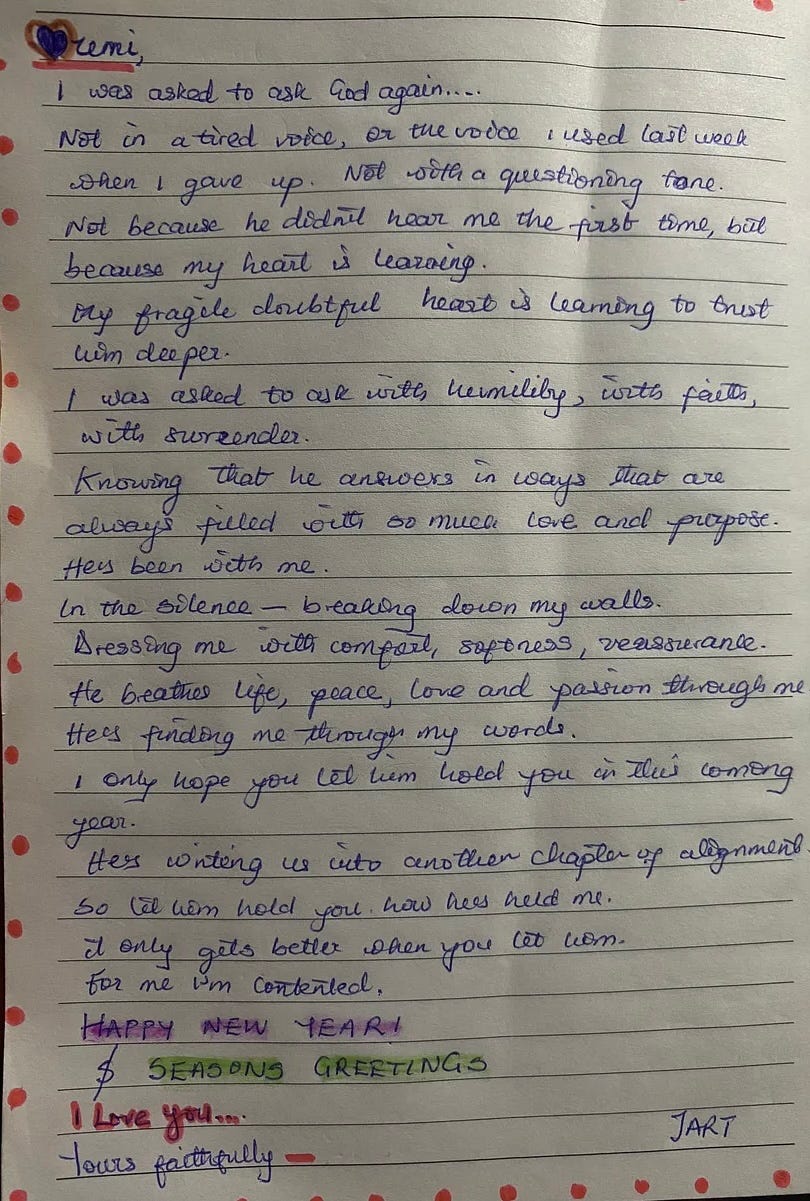 remi,
I was asked to ask God again....
Not in a tired voice, or the voice i used last week
when I gave up. Not with a questioning tone.
Not because he didn't hear me the first time, but
because my heart is learning.
My fragile doubtful heart is learning to trust
him deeper.
I was asked to ask with humility, with faith,
with surrender.
Knowing that he answers in ways that are
always filled with so much love and purpose.
He's been with me.
In the silence — breaking down my walls.
Dressing me with comfort, softness, reassurance.
He breathes life, peace, love and passion through me
He's finding me through my words.
I only hope you let him hold you in this coming
year.
He's writing us into another chapter of alignment.
So let him hold you how he's held me.
it only gets better when you let him.
For me I'm contented.
HAPPY NEW YEAR!
$ SEASONS GREETINGS
I Love you....
JART
Yours faithfully —